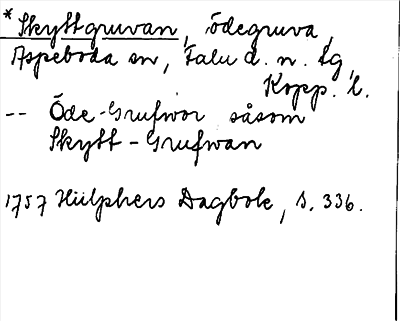 * Skyttgruvan, ödegruva,
Aspeboda sn, Falu d. n. tg,
Kopp. l.
-- Öde-Grufwor såsom
Skytt-Grufwan
1757 Hülphers Dagbok, s. 336.